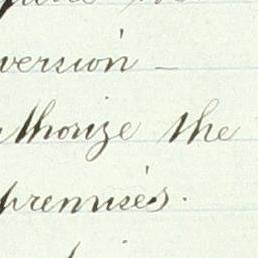 version –
thorize the
premises.